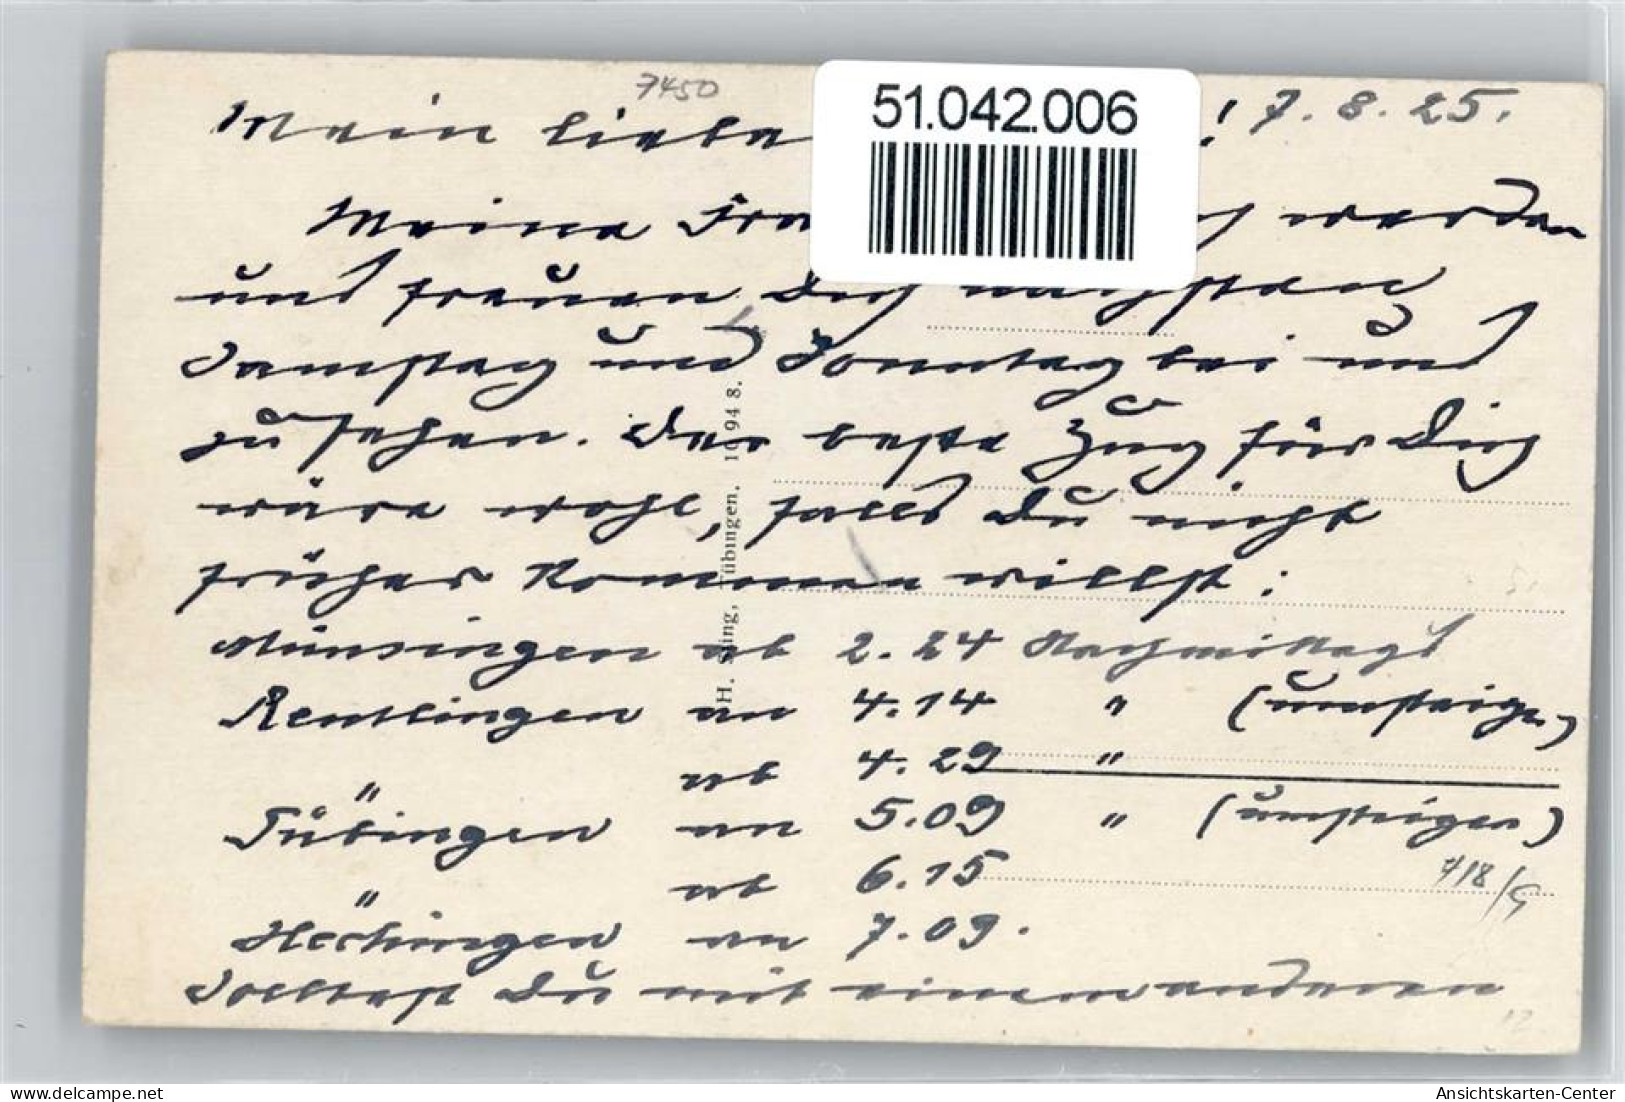 7450
51.042.006
Mein lieber ! 7.8.25.
Meine Frau ich werden
uns freuen Dich nächsten
Samstag und Sonntag bei uns
zu sehen. Der beste Zug für Dich
wäre wohl, falls Du nicht
früher kommen willst:
Münsingen ab 2.24 Nachmittags
Reutlingen an 4.14 " (umsteigen)
" ab 4.29 "
Tübingen an 5.09 " (umsteigen)
" ab 6.15
Hechingen an 7.09.
Solltest Du mit einem anderen
7/8/5
12
H. Tübingen. 1094 8.
Ansichtskarten-Center
delcampe.net